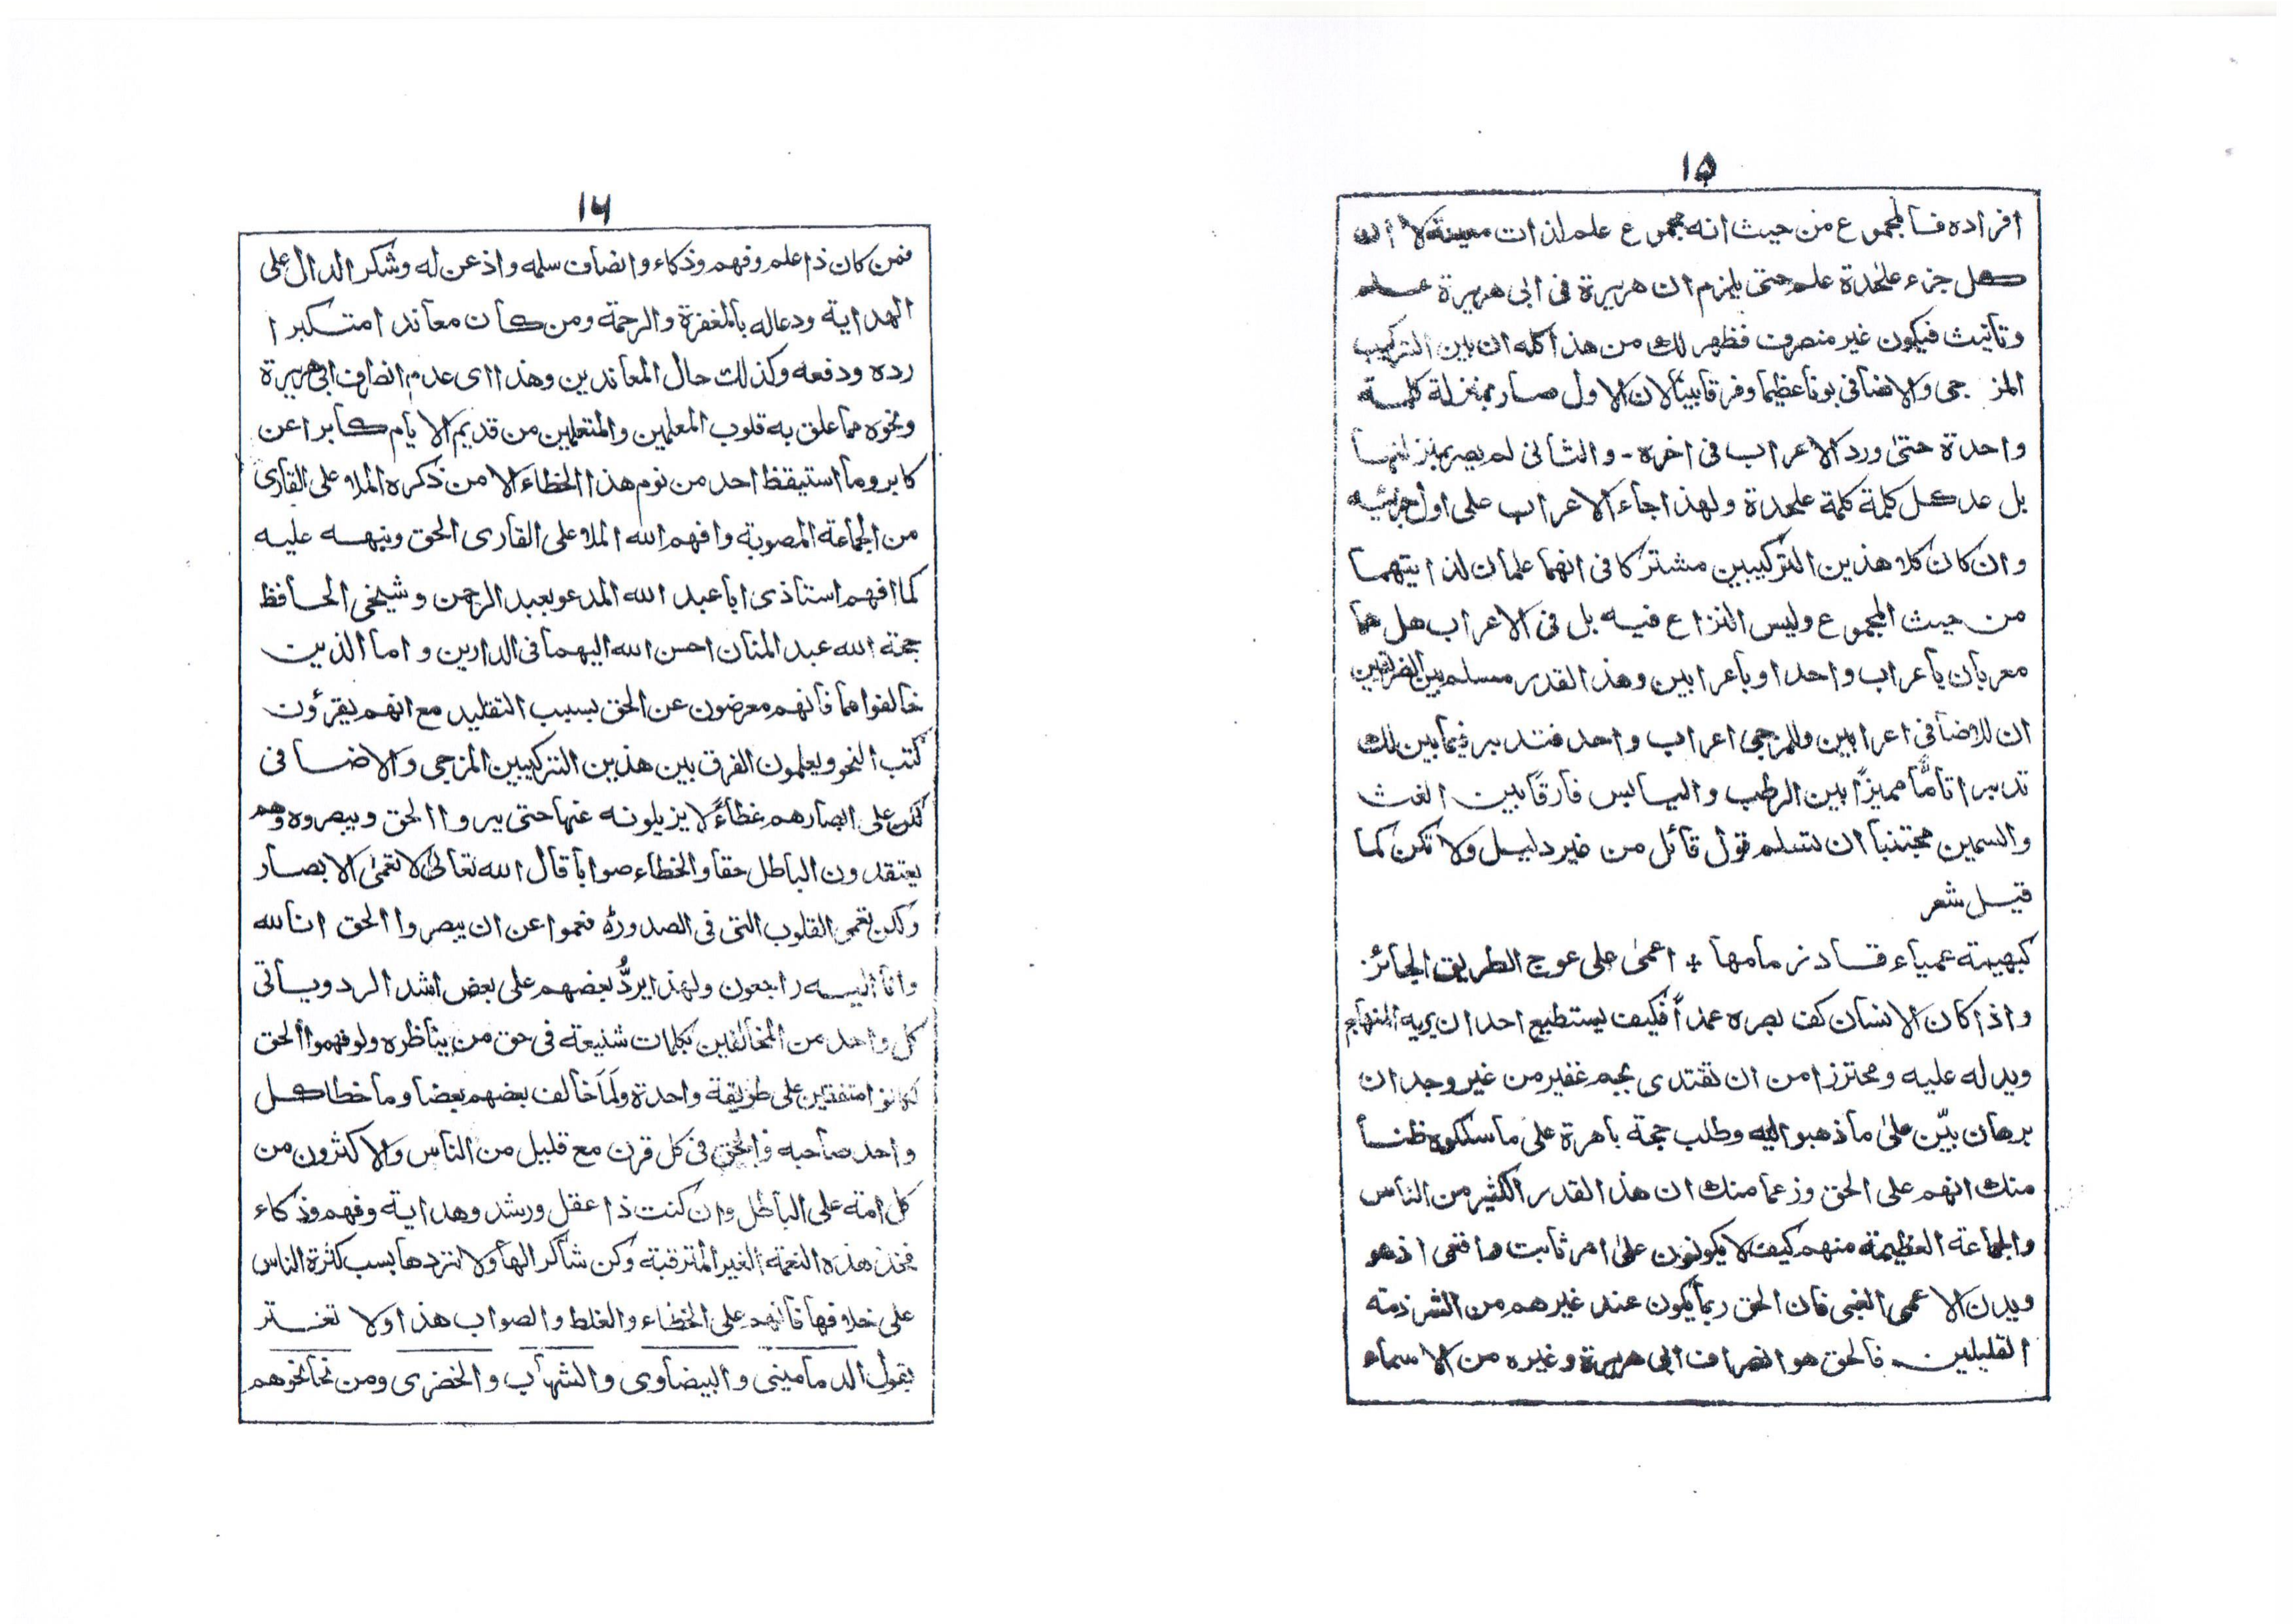 ١٥
افراده فالمجموع من حيث انه مجموع علم لذات معينة لا ان
كل جزء علحدة علم حتى يلزم ان هريرة فى ابى هريرة علم
وتأنيث فيكون غير منصرف فظهر لك من هذا كله ان بين التركيب
المزجى والاضافى بونا عظيما وفرقا بينا لان الاول صار بمنزلة كلمة
واحدة حتى ورد الاعراب فى اخره - والثانى لم يصر بمنزلتها
بل عد كل كلمة كلمة علحدة ولهذا جاء الاعراب على اول جزئيه
وان كان كلا هذين التركيبين مشتركا فى انهما علمان لذايتهما
من حيث المجموع وليس النزاع فيه بل فى الاعراب هل هما
معربان باعراب واحد او باعرابين وهذا القدر مسلم بين الفريقين
ان للاضافى اعرابين وللمزجى اعراب واحد فتدبر فيما بين لك
تدبرا تامًّا مميزًا بين الرطب واليابس فارقًا بين الغث
والسمين مجتنبا ان تسلم قول قائل من غير دليل ولا تكن كما
قيل شعر
كبهيمة عمياء قاد زمامها + اعمى على عوج الطريق الجائز
واذا كان الانسان كف بصره عمدًا فكيف يستطيع احد ان يريه المنهاج
ويدله عليه ومحترزا من ان تقتدى بجم غفير من غير وجدان
برهان بيّن على ما ذهبوا اليه وطلب حجة باهرة على ما سلكوه ظنا
منك انهم على الحق وزعما منك ان هذا القدر الكثير من الناس
والجماعة العظيمة منهم كيف لا يكونون على امر ثابت واقعى اذ هو
ويدن الاعمى الغبى فان الحق ربما يكون عند غيرهم من الشرذمة
القليلين فالحق هو انصراف ابى هريرة وغيره من الاسماء
١٦
فمن كان ذا علم وفهم وذكاء وانصاف سلمه واذعن له وشكر الدال على
الهداية ودعا له بالمغفرة والرحمة ومن كان معاندا متكبرا
رده ودفعه وكذلك حال المعاندين وهذا اى عدم انصراف ابى هريرة
ونحوه مما علق به قلوب المعلمين والمتعلمين من قديم الايام كابرا عن
كابر وما استيقظ احد من نوم هذا الخطاء الا من ذكره الملا على القارى
من الجماعة المصوبة وافهم الله الملا على القارى الحق ونبهه عليه
كما افهم استاذى ابا عبد الله المدعو بعبد الرحمن وشيخى الحافظ
حجة الله عبد المنان احسن الله اليهما فى الدارين واما الذين
خالفوا هما فانهم معرضون عن الحق بسبب التقليد مع انهم يقرؤن
كتب النحو ويعلمون الفرق بين هذين التركيبين المزجى والاضافى
لكن على ابصارهم غطاءً لا يزيلونه عنها حتى يروا الحق ويبصروه وهم
يعتقدون الباطل حقا والخطاء صوابا قال الله تعالى لا تعمى الابصار
ولكن تعمى القلوب التى فى الصدور فعموا عن ان يبصروا الحق انا لله
وانا اليه راجعون ولهذا يردُّ بعضهم على بعض اشد الرد وياتى
كل واحد من المخالفين بكلمات شنيعة فى حق من يناظره ولو فهموا الحق
لكانوا متفقين على طريقة واحدة ولَمَا خالف بعضهم بعضا وما خطا كل
واحد صاحبه فالحق فى كل قرن مع قليل من الناس والاكثرون من
كل امة على الباطل وان كنت ذا عقل ورشد وهداية وفهم وذكاء
فخذ هذه النعمة الغير المترقبة وكن شاكرا لها ولا تردها بسبب كثرة الناس
على خلافها فانهم على الخطاء والغلط والصواب هذا ولا تغتر
بقول الدمامينى والبيضاوى والشهاب والخضرى ومن نحا نحوهم